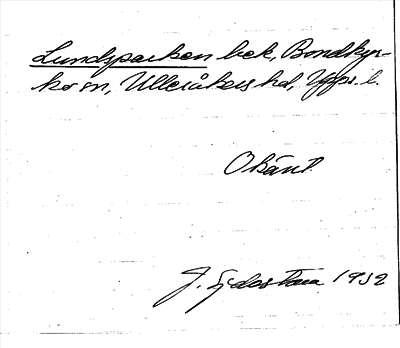 Lundsparken bek, Bondkyr-
ko sn, Ulleråkers hd, Upps. l.
Okänt.
J. 1932